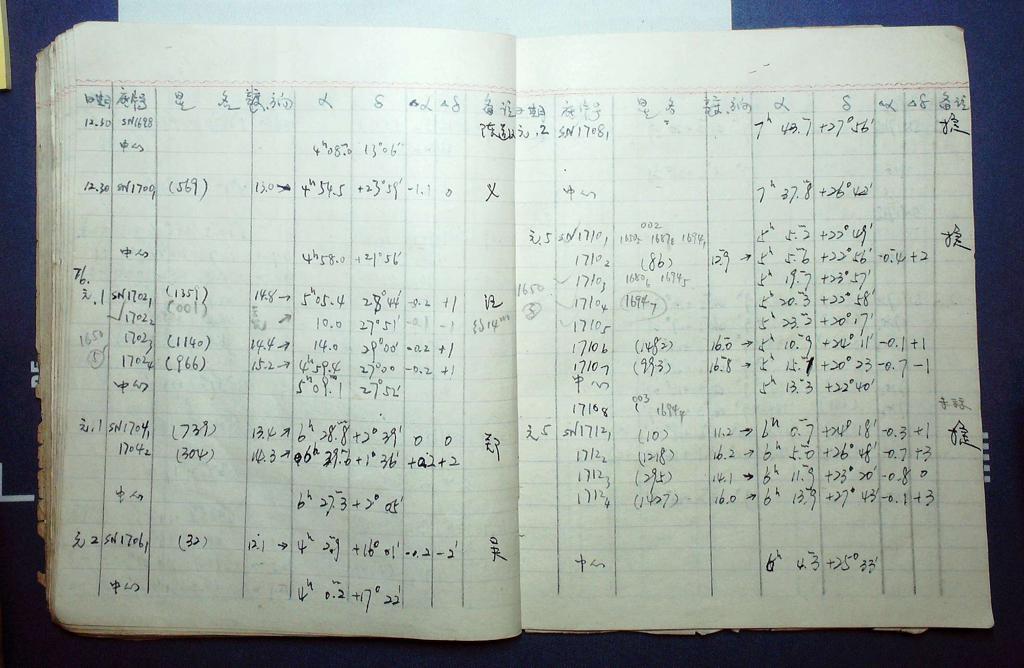 日期 底片号 星名 α δ Δα Δδ 备注
12.30 SN1698
中心 4ʰ08ᵐ.0 13°06′
12.30 SN1700₁ (569) 13.0→ 4ʰ54.5 +23°59′ -1.1 0 义
中心 4ʰ58.0 +21°56′
76.
元.1 SN1702₁ (1359) 14.8→ 5ʰ05.4 28°44′ -0.2 +1
1702₂ (001) → 10.0 27°51′ -0.1 -1
1650 1702₃ (1140) 14.4→ 14.0 29°00′ -0.2 +1
⑤ 1702₄ (966) 15.2→ 4ʰ59.4 27°00 -0.2 +1
中心 5ʰ09ᵐ.1 27°52′
元.1 SN1704₁ (739) 13.4→ 6ʰ 28ᵐ.8 +2°39′ 0 0 郑
1704₂ (304) 14.3→ 6ʰ 29ᵐ.6 +1°36′ +0.2 +2
中心 6ʰ 27ᵐ.3 +2°05′
元2 SN1706₁ (32) 12.1→ 4ʰ 2ᵐ.9 +16°01′ -0.2 -2′ 吴
中心 4ʰ 0ᵐ.2 +17°22′
日期 底片号 星名 α δ Δα Δδ 备注
元.2 SN1708₁ 7ʰ 43ᵐ.7 +27°56′
中心 7ʰ 37ᵐ.8 +26°42′
002
元.5 SN1710₁ 1650₅ 1687₈ 1694₁ 5ʰ 5ᵐ.2 +22°49′
1710₂ (86) 12.9→ 5ʰ 5ᵐ.6 +22°56′ -0.4 +2
1710₃ 1680₆ 1694₅ 5ʰ 19ᵐ.7 +23°57′
1650 1710₄ 1694₇ 5ʰ 20ᵐ.3 +22°58′
⑤ 1710₅ 5ʰ 23ᵐ.2 +20°17′
1710₆ (1482) 16.0→ 5ʰ 10ᵐ.9 +24°11′ -0.1 +1
1710₇ (993) 16.8→ 5ʰ 15ᵐ.1 +20°23 -0.7 -1
中心 5ʰ 13ᵐ.3 +22°40′
1710₈ 003 1694₄
元5 SN1712₁ (10) 11.2→ 6ʰ 0ᵐ.7 +24°18′ -0.3 +1
1712₂ (1218) 16.2→ 6ʰ 5ᵐ.0 +26°48′ -0.7 +3
1712₃ (295) 14.1→ 6ʰ 11ᵐ.9 +23°20′ -0.8 0
1712₄ (1427) 16.0→ 6ʰ 13ᵐ.9 +27°43′ -0.1 +3
中心 6ʰ 4ᵐ.3 +25°33′